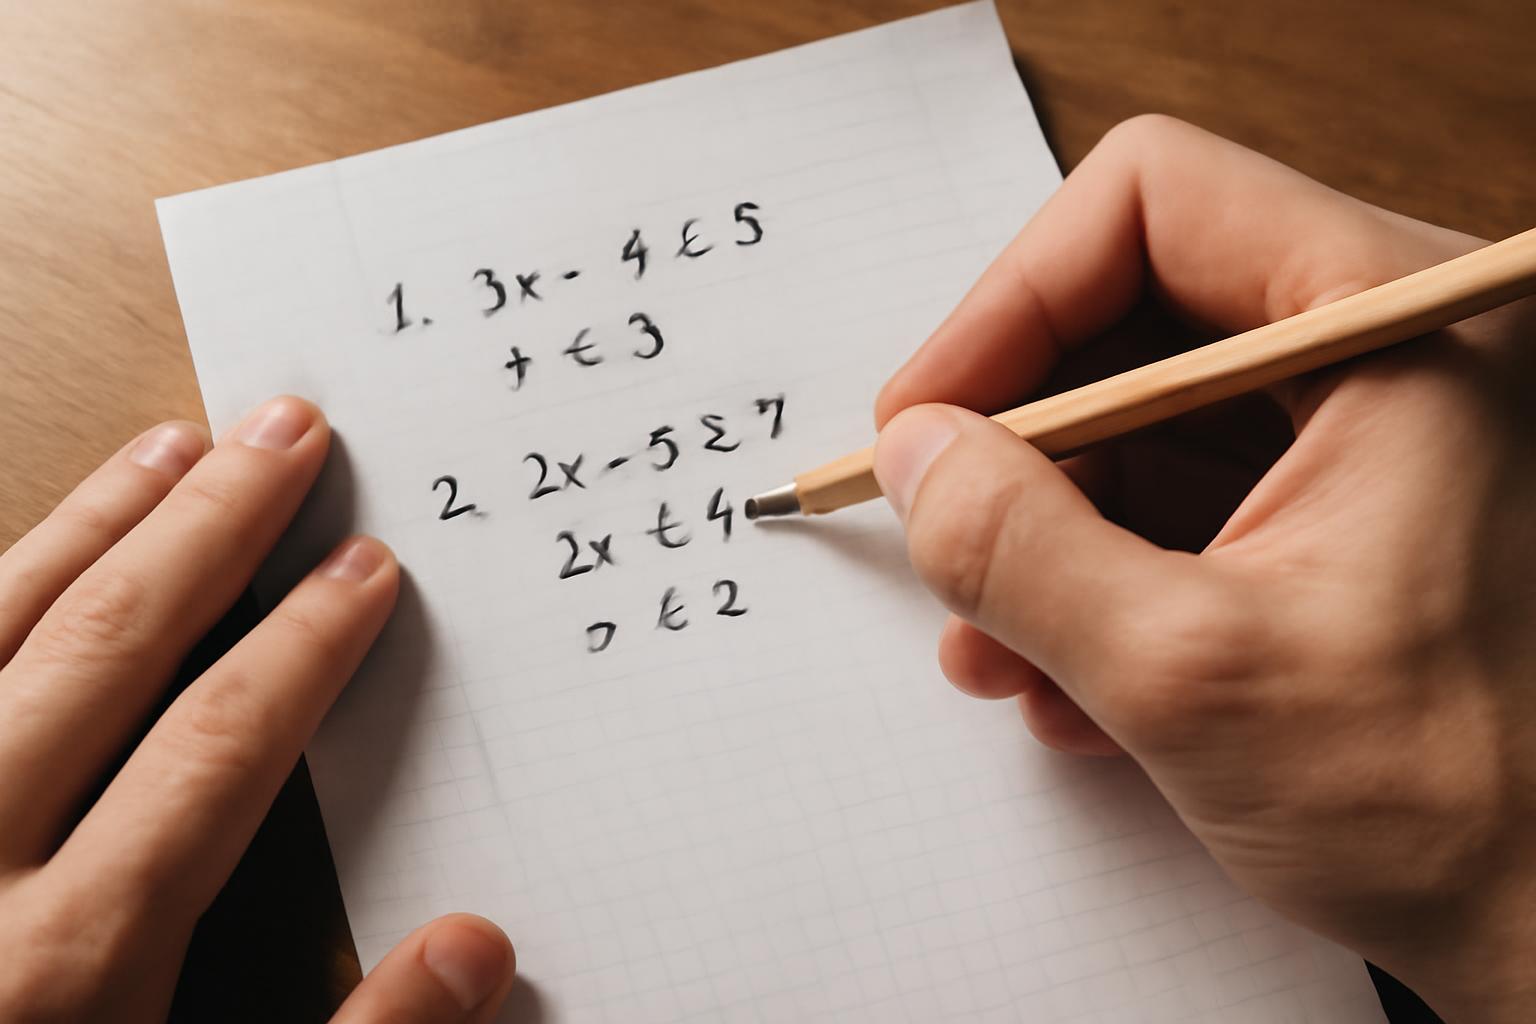 1. 3x - 4 ≤ 5
+ ≤ 3
2. 2x - 5 Σ 7
2x ≤ 4
≤ 2